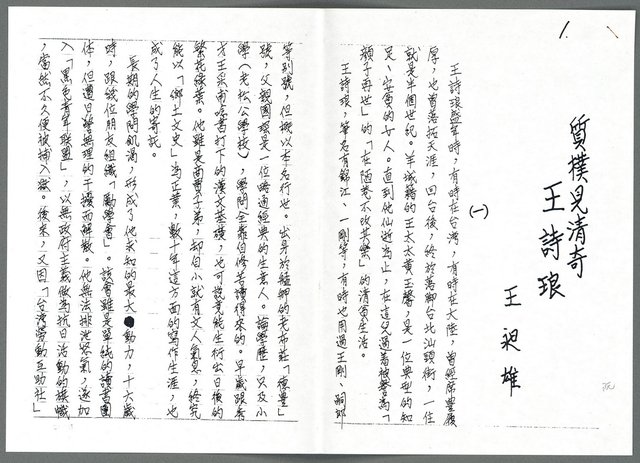 1.
質樸見清奇
王詩琅
王昶雄
(一)
王詩琅盛年時，有時在台灣，有時在大陸，曾經席豐履
厚，也曾落拓天涯，回台後，終於落腳台北汕頭街，一住
就是半個世紀。羊城籍的王太太黃玉馨，是一位典型的知
足、安貧的女人。直到他仙逝為止，在這兒過着被譽為「
顏子再世」的「在陋巷不改其樂」的清貧生活。
王詩琅，筆名有錦江、一剛等，有時也用過王剛、嗣郎
等別號，但概以本名行世。出身於艋舺的老布莊「德豐」
號，父親國琛是一位略通經典的生意人。論學歷，只及小
學（老松公學校），學問全靠自修苦讀得來的。早歲跟秀
才王采甫唸書打下的漢文基礎，也可說竟能生衍出日後的
繁花綠葉。他雖是商賈子弟，卻自小就有文人氣息，終究
能以「鄉土文史」為正業，數十年這方面的寫作生涯，也
成了人生的寄託。
長期的學問飢渴，形成了他求知的最大動力，十六歲
時，跟幾位朋友組織「勵學會」。該會雖是單純的讀書團
體，但遭日警無理的干擾而解散。他無法排洩怒氣，遂加
入「黑色青年聯盟」，以無政府主義做為抗日活動的旗幟
，當然不久便被捕入獄。後來，又因「台灣勞動互助社」